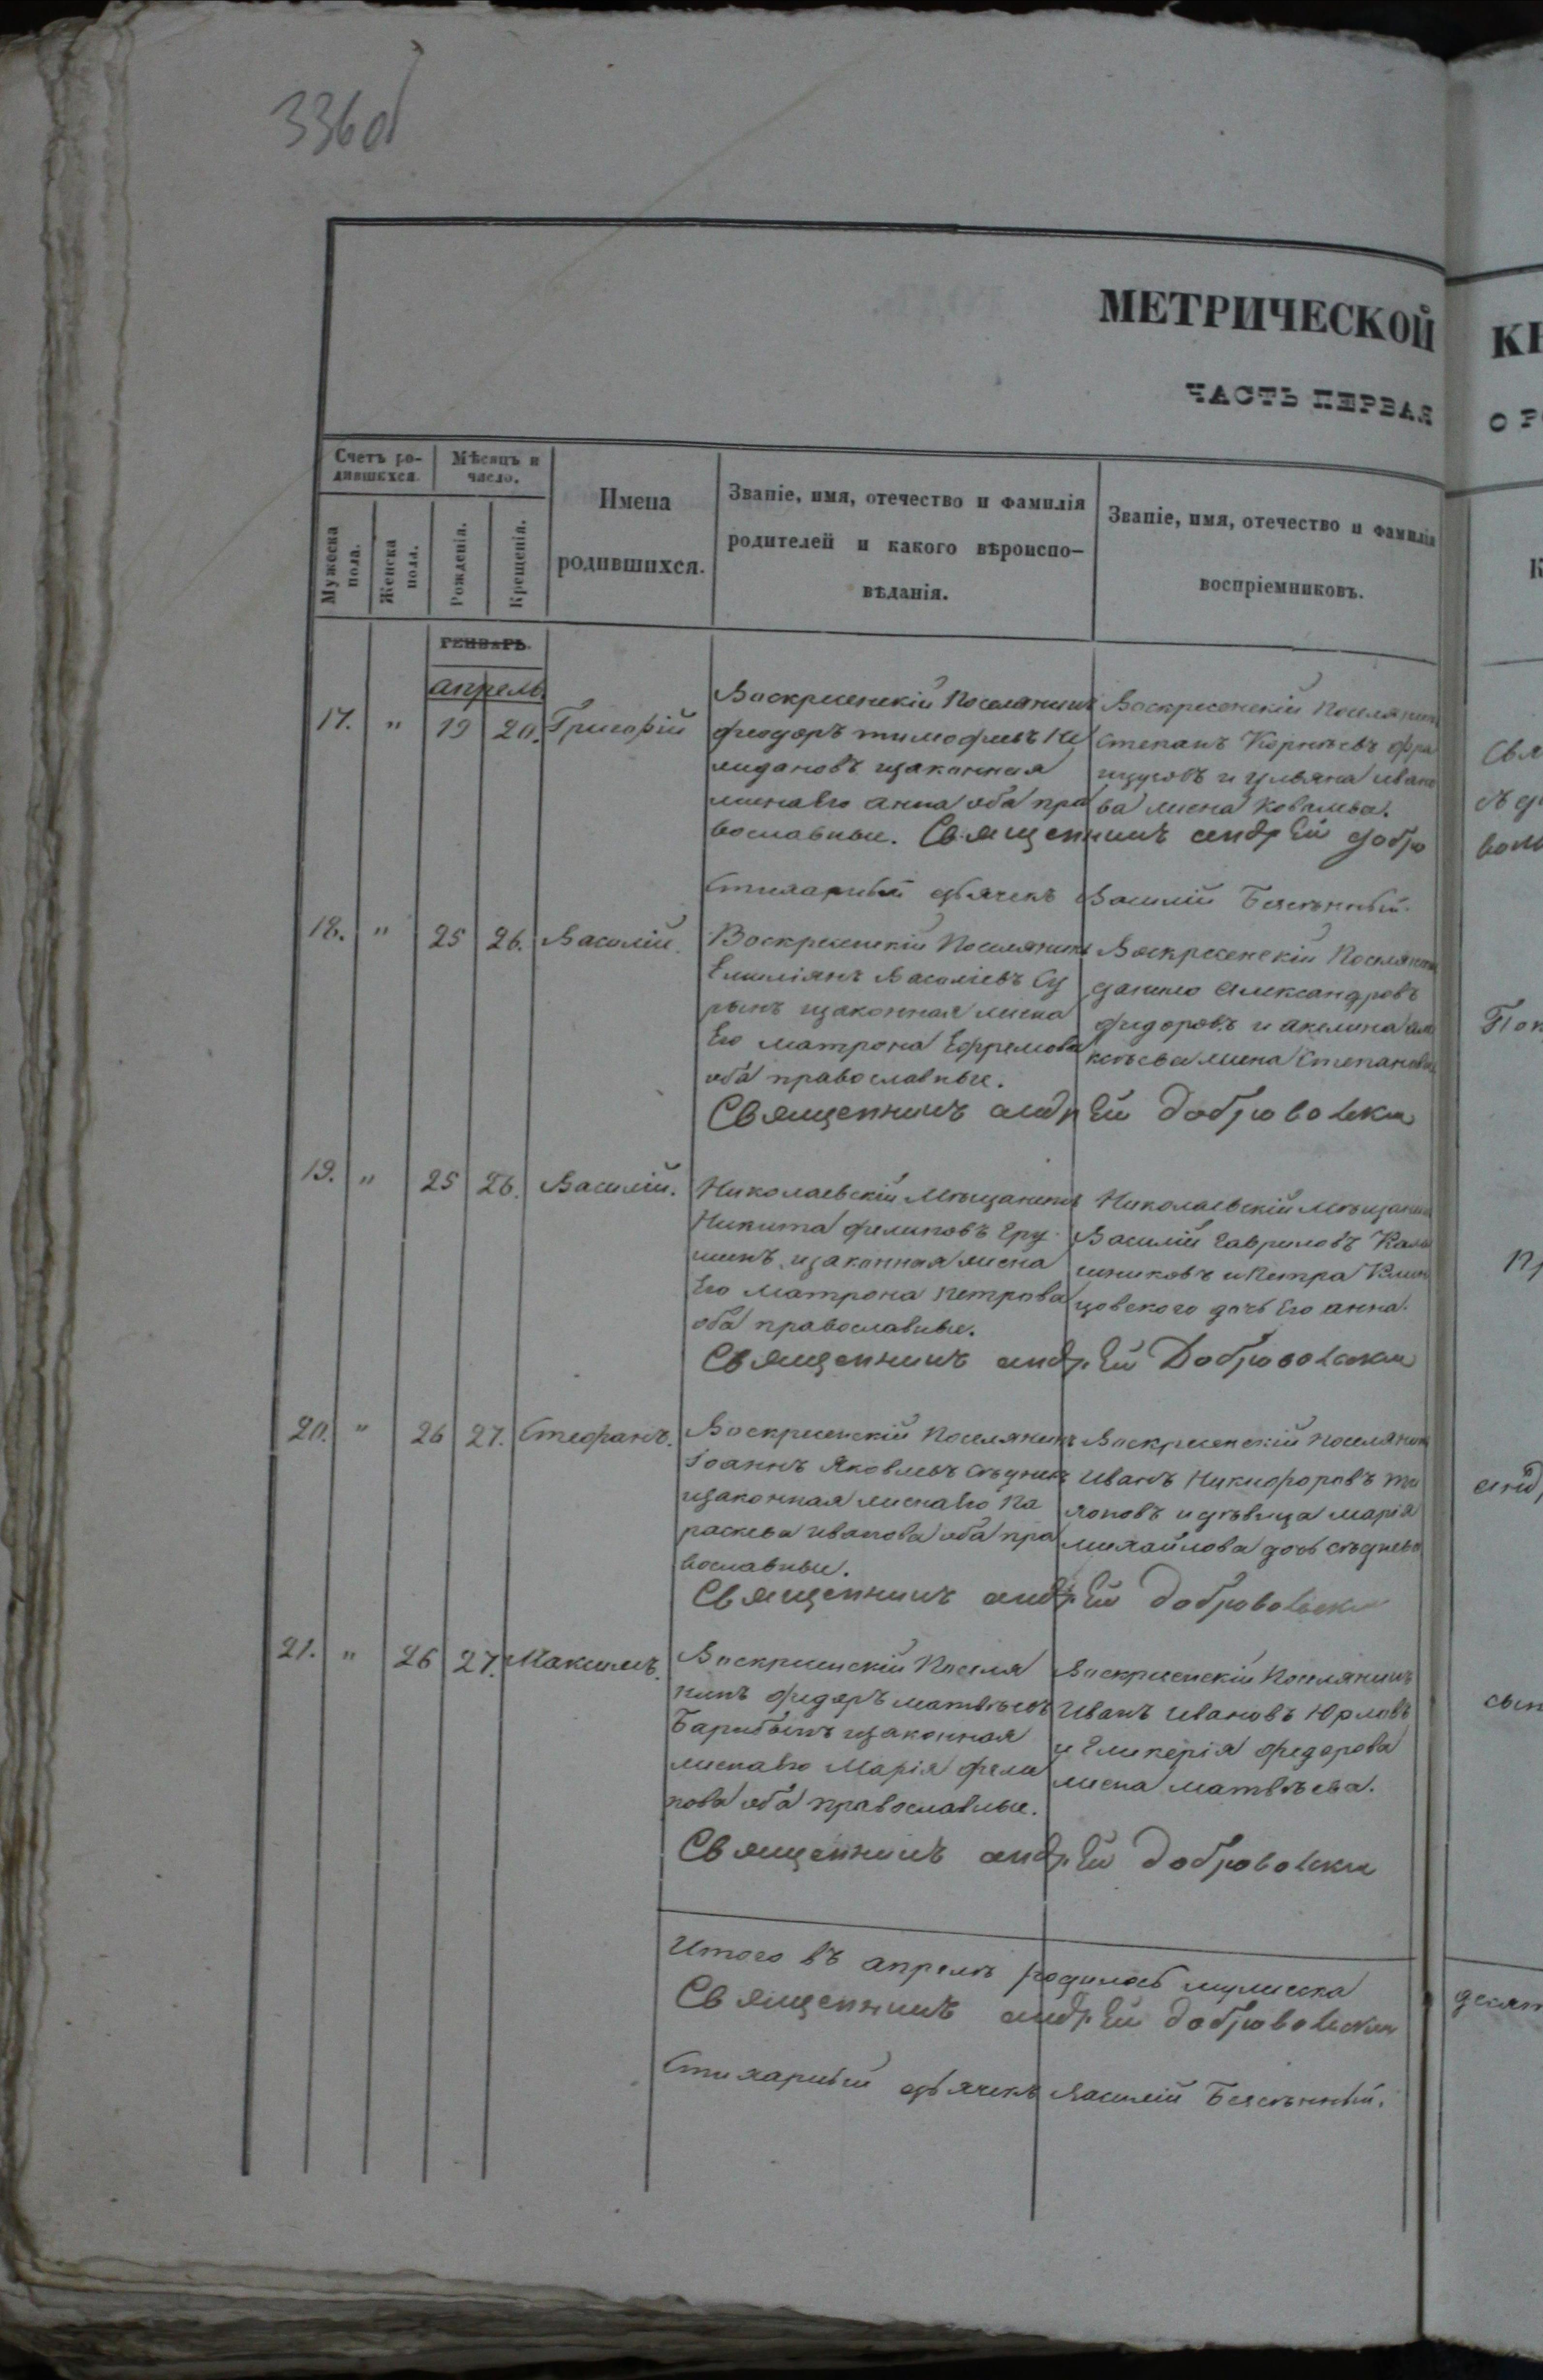 336об
МЕТРИЧЕСКОЙ
ЧАСТЬ ПЕРВАЯ
Счетъ ро-
дившихся.
Мѣсяцъ и
число.
Мужеска
пола.
Женска
пола.
Рожденія.
Крещенія.
Имена
родившихся.
Званіе, имя, отечество и фамилія
родителей и какого вѣроиспо-
вѣданія.
Званіе, имя, отечество и фамилія
воспріемниковъ.
ГЕНВАРЬ.
апрель
17. " 19 20. Григорій
Воскресенскій Поселянинъ
феодоръ тимофеевъ Че
лидановъ изаконная
женаего анна оба пра
вославные. Священникъ андрЕй добро
Воскресенскій Поселянин
Степанъ Корнѣевъ фра
нцузовъ и ульяна ивано
ва жена Ковалева.
Стихарный дьячекъ Василій
18. " 25 26. Василій.
Воскресенскій Поселянинъ
Емиліянъ Василіевъ Су
рынъ изаконная жена
Его матрона Ефремова
оба православные.
Воскресенскій Поселянин
данило александровъ
федоровъ и акелина але
ксѣева жена Степанова
Священникъ андрЕй добровольски
19. " 25 26. Василій.
Николаевскій мѣщанинъ
Никита филиповъ Еру
шинъ, изаконная жена
Его матрона петрова
оба православные.
Николаевскій мѣщанин
Василій Гавриловъ Кала
шниковъ и Петра Клин
цовского дочь Его анна.
Священникъ андрЕй Добровольски
20. " 26 27. Стефанъ.
Воскресенскій поселянинъ
Іоаннъ Яковлевъ Сѣдневъ
изаконная женаего Па
раскева иванова оба пра
вославные.
Воскресенскій поселянин
иванъ Никифоровъ ти
хоновъ и дѣвица марія
михайлова дочь сѣднева
Священникъ андрЕй добровольски
21. " 26 27. Максимъ.
Воскресенскій Поселя
нинъ федоръ матвѣевъ
Барыбинъ изаконная
женаего Марія фели
пова оба православные.
Воскресенскій Поселянинъ
иванъ ивановъ Юрловъ
и Гликерія федорова
жена матвѣева.
Священникъ андрЕй добровольски
Итого въ апрелѣ родилось мужеска
Священникъ андрЕй добровольски
Стихарный дьячекъ Василій